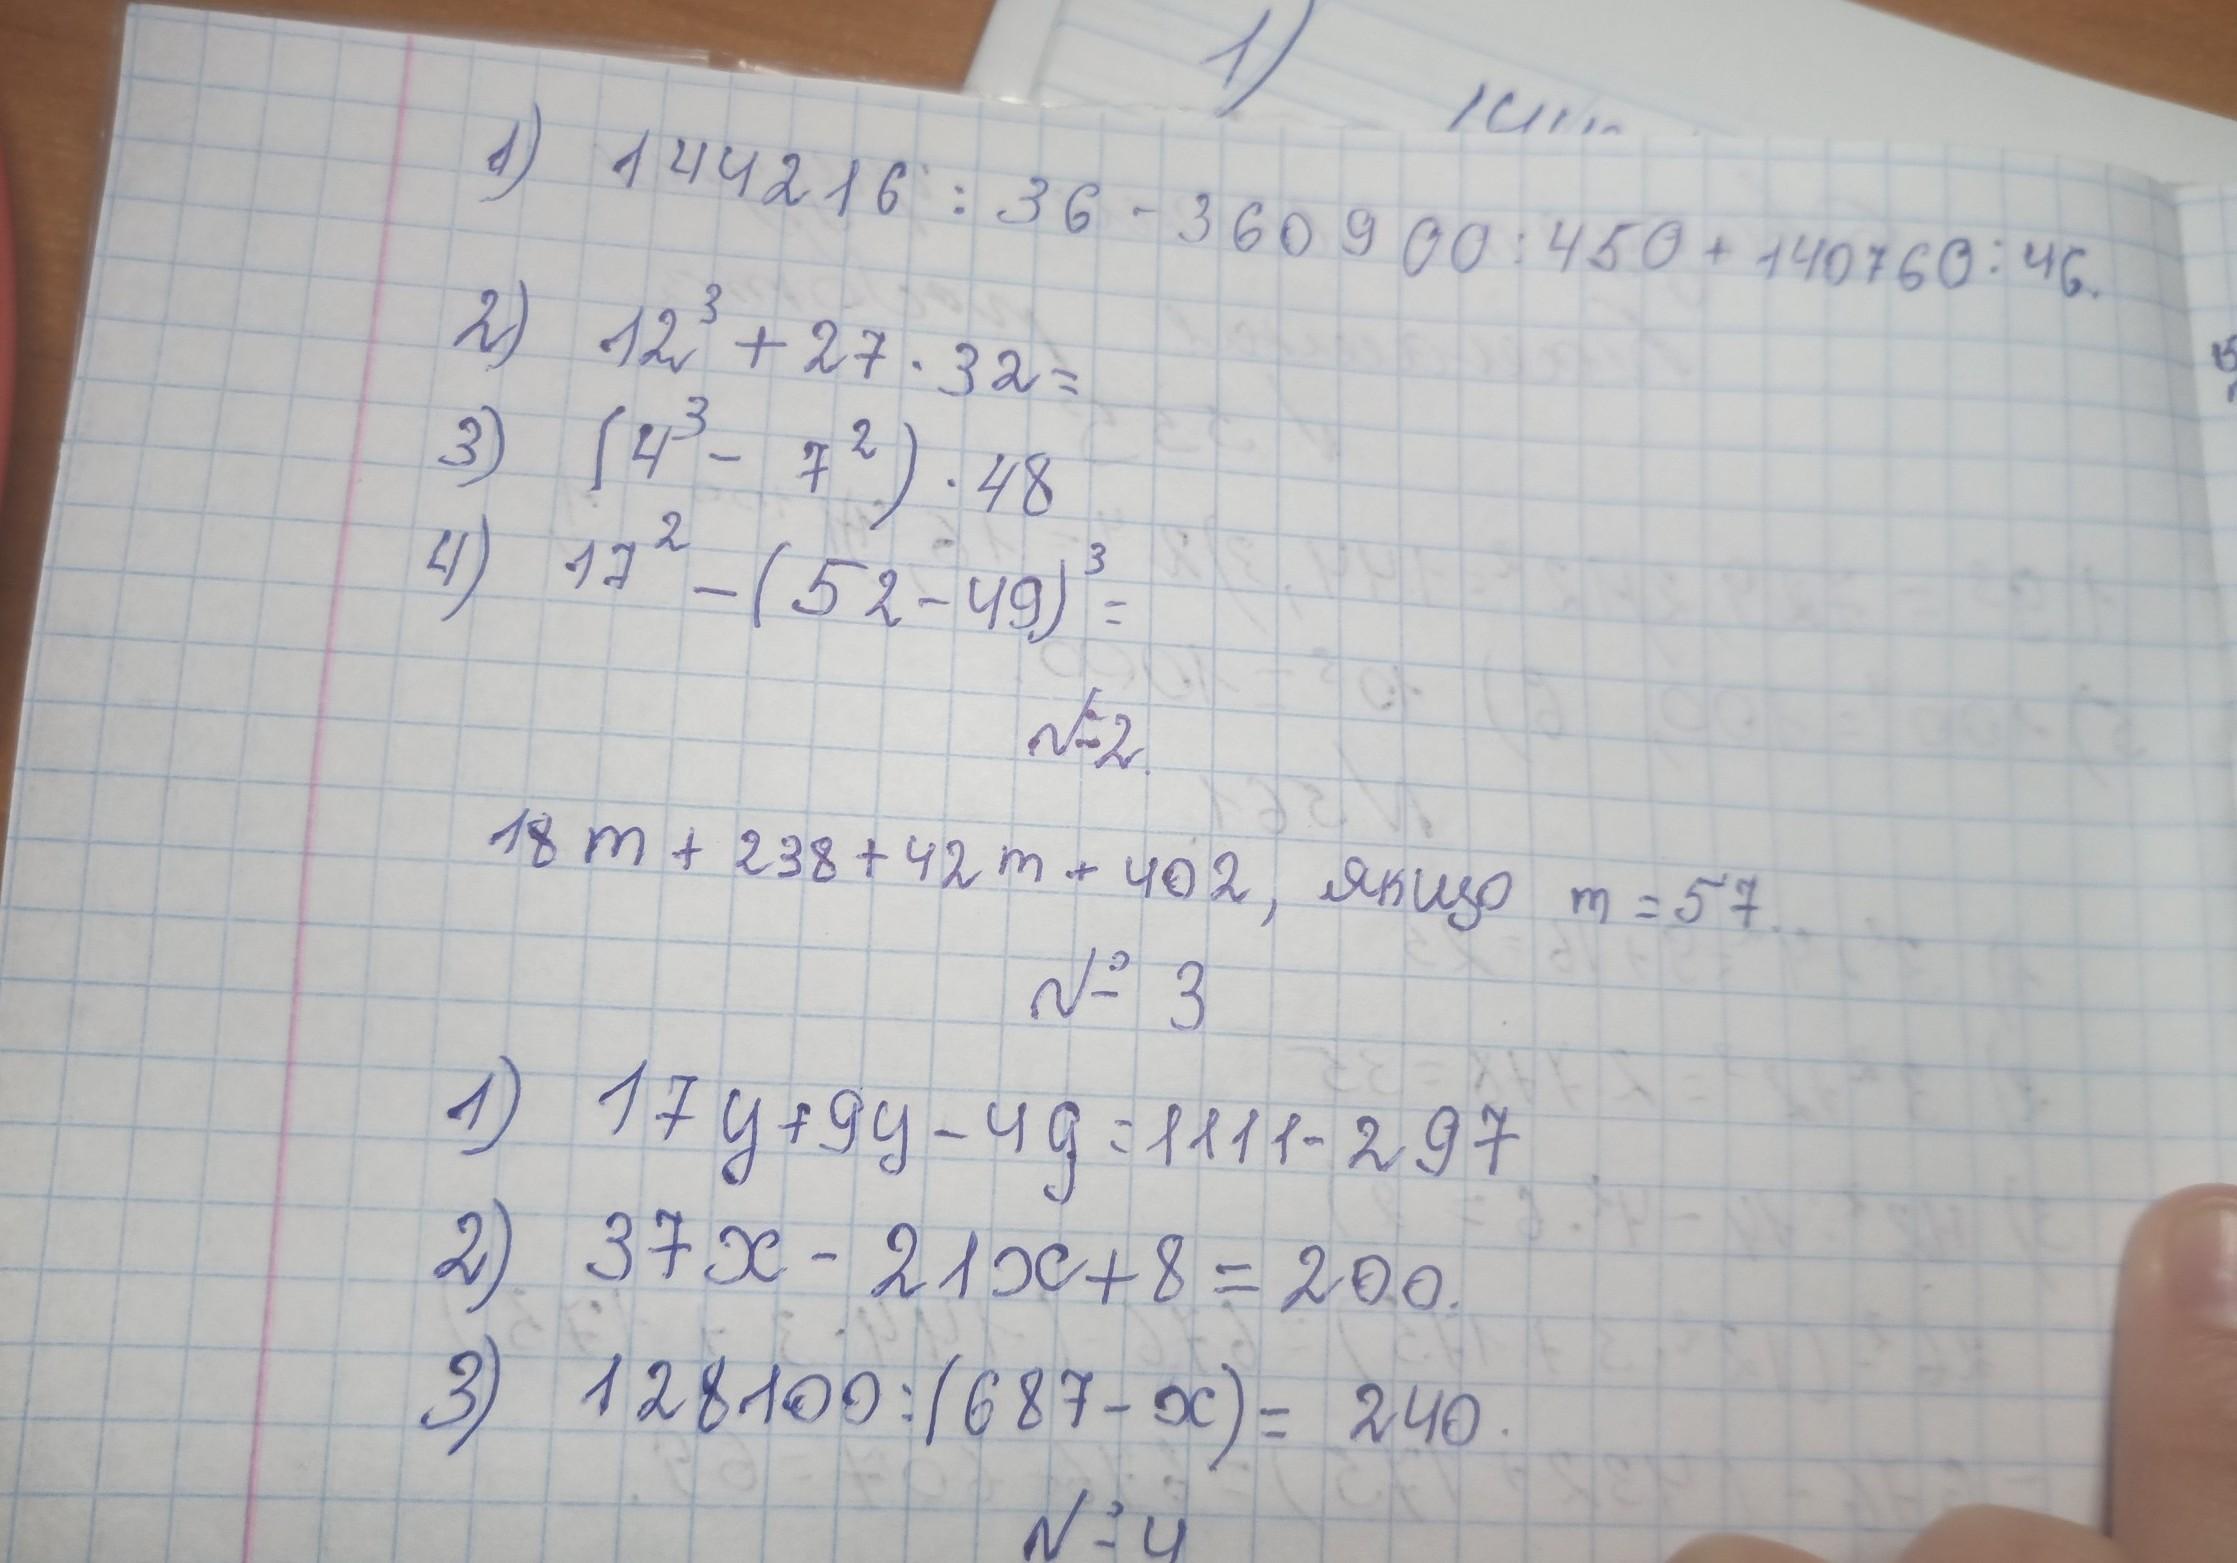 1)
1) 144216 : 36 - 360900 : 450 + 140760 : 46.
2) 12³ + 27 · 32 =
3) (4³ - 7²) · 48
4) 17² - (52 - 49)³ =
№2.
18 m + 238 + 42 m + 402, якщо m = 57.
№ 3
1) 17y + 9y - 4y = 1111 - 297
2) 37x - 21x + 8 = 200.
3) 128100 : (687 - x) = 240.
№ 4